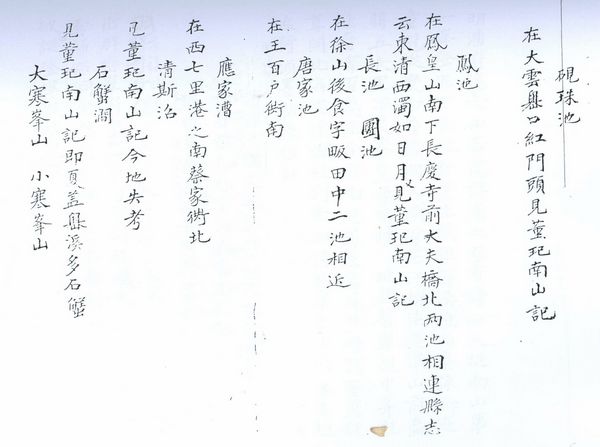 硯珠池
在大雲盤口紅門頭見董玘南山記
鳳池
在鳳皇山南下長慶寺前大夫橋北兩池相連縣志
云東清西濁如日月見董玘南山記
長池 圓池
在徐山後食字畈田中二池相近
唐家池
在王百户衖南
應家漕
在西七里港之南蔡家衖北
清斯沼
見董玘南山記今地失考
石蟹澗
見董玘南山記即夏蓋盤溪多石蟹
大寒峯山 小寒峯山